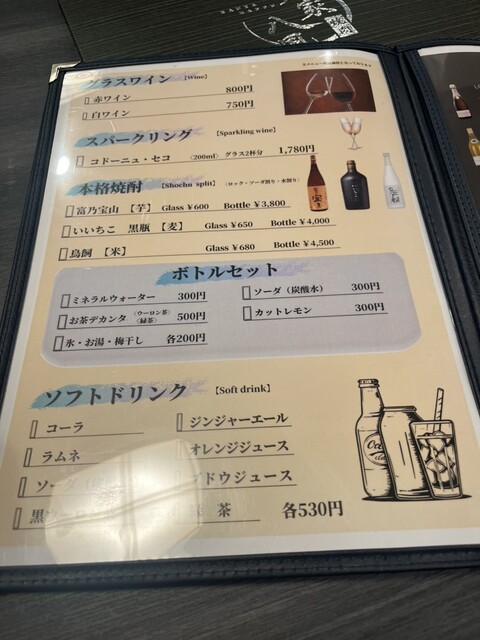 グラスワイン 【Wine】
赤ワイン 800円
白ワイン 750円
スパークリング 【Sparkling wine】
コドーニュ・セコ 〈200ml〉 グラス2杯分 1,780円
本格焼酎 【Shochu split】 (ロック・ソーダ割り・水割り)
富乃宝山 【芋】 Glass ¥600 Bottle ¥3,800
いいちこ 黒瓶 【麦】 Glass ¥650 Bottle ¥4,000
鳥飼 【米】 Glass ¥680 Bottle ¥4,500
ボトルセット
ミネラルウォーター 300円
ソーダ（炭酸水） 300円
お茶デカンタ 〈ウーロン茶〉〈緑茶〉 500円
カットレモン 300円
氷・お湯・梅干し 各200円
ソフトドリンク 【Soft drink】
コーラ
ジンジャーエール
ラムネ
オレンジジュース
ソーダ
ブドウジュース
黒
茶 各530円